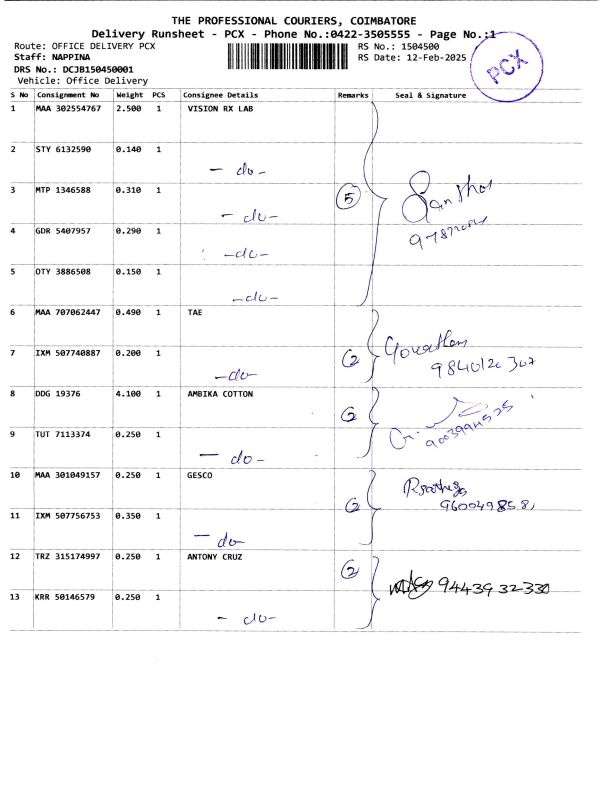 THE PROFESSIONAL COURIERS, COIMBATORE
Delivery Runsheet - PCX - Phone No.:0422-3505555 - Page No.:1
Route: OFFICE DELIVERY PCX
RS No.: 1504500
Staff: NAPPINA
RS Date: 12-Feb-2025
DRS No.: DCJB150450001
Vehicle: Office Delivery
PCX
S No Consignment No Weight PCS Consignee Details Remarks Seal & Signature
1 MAA 302554767 2.500 1 VISION RX LAB
2 STY 6132590 0.140 1
- do -
3 MTP 1346588 0.310 1
5
- do -
4 GDR 5407957 0.290 1
- do -
5 OTY 3886508 0.150 1
- do -
6 MAA 707062447 0.490 1 TAE
7 IXM 507740887 0.200 1
2
- do -
8 DDG 19376 4.100 1 AMBIKA COTTON
2
9 TUT 7113374 0.250 1
- do -
10 MAA 301049157 0.250 1 GESCO
2
11 IXM 507756753 0.350 1
- do -
12 TRZ 315174997 0.250 1 ANTONY CRUZ
2
9443932330
13 KRR 50146579 0.250 1
- do -